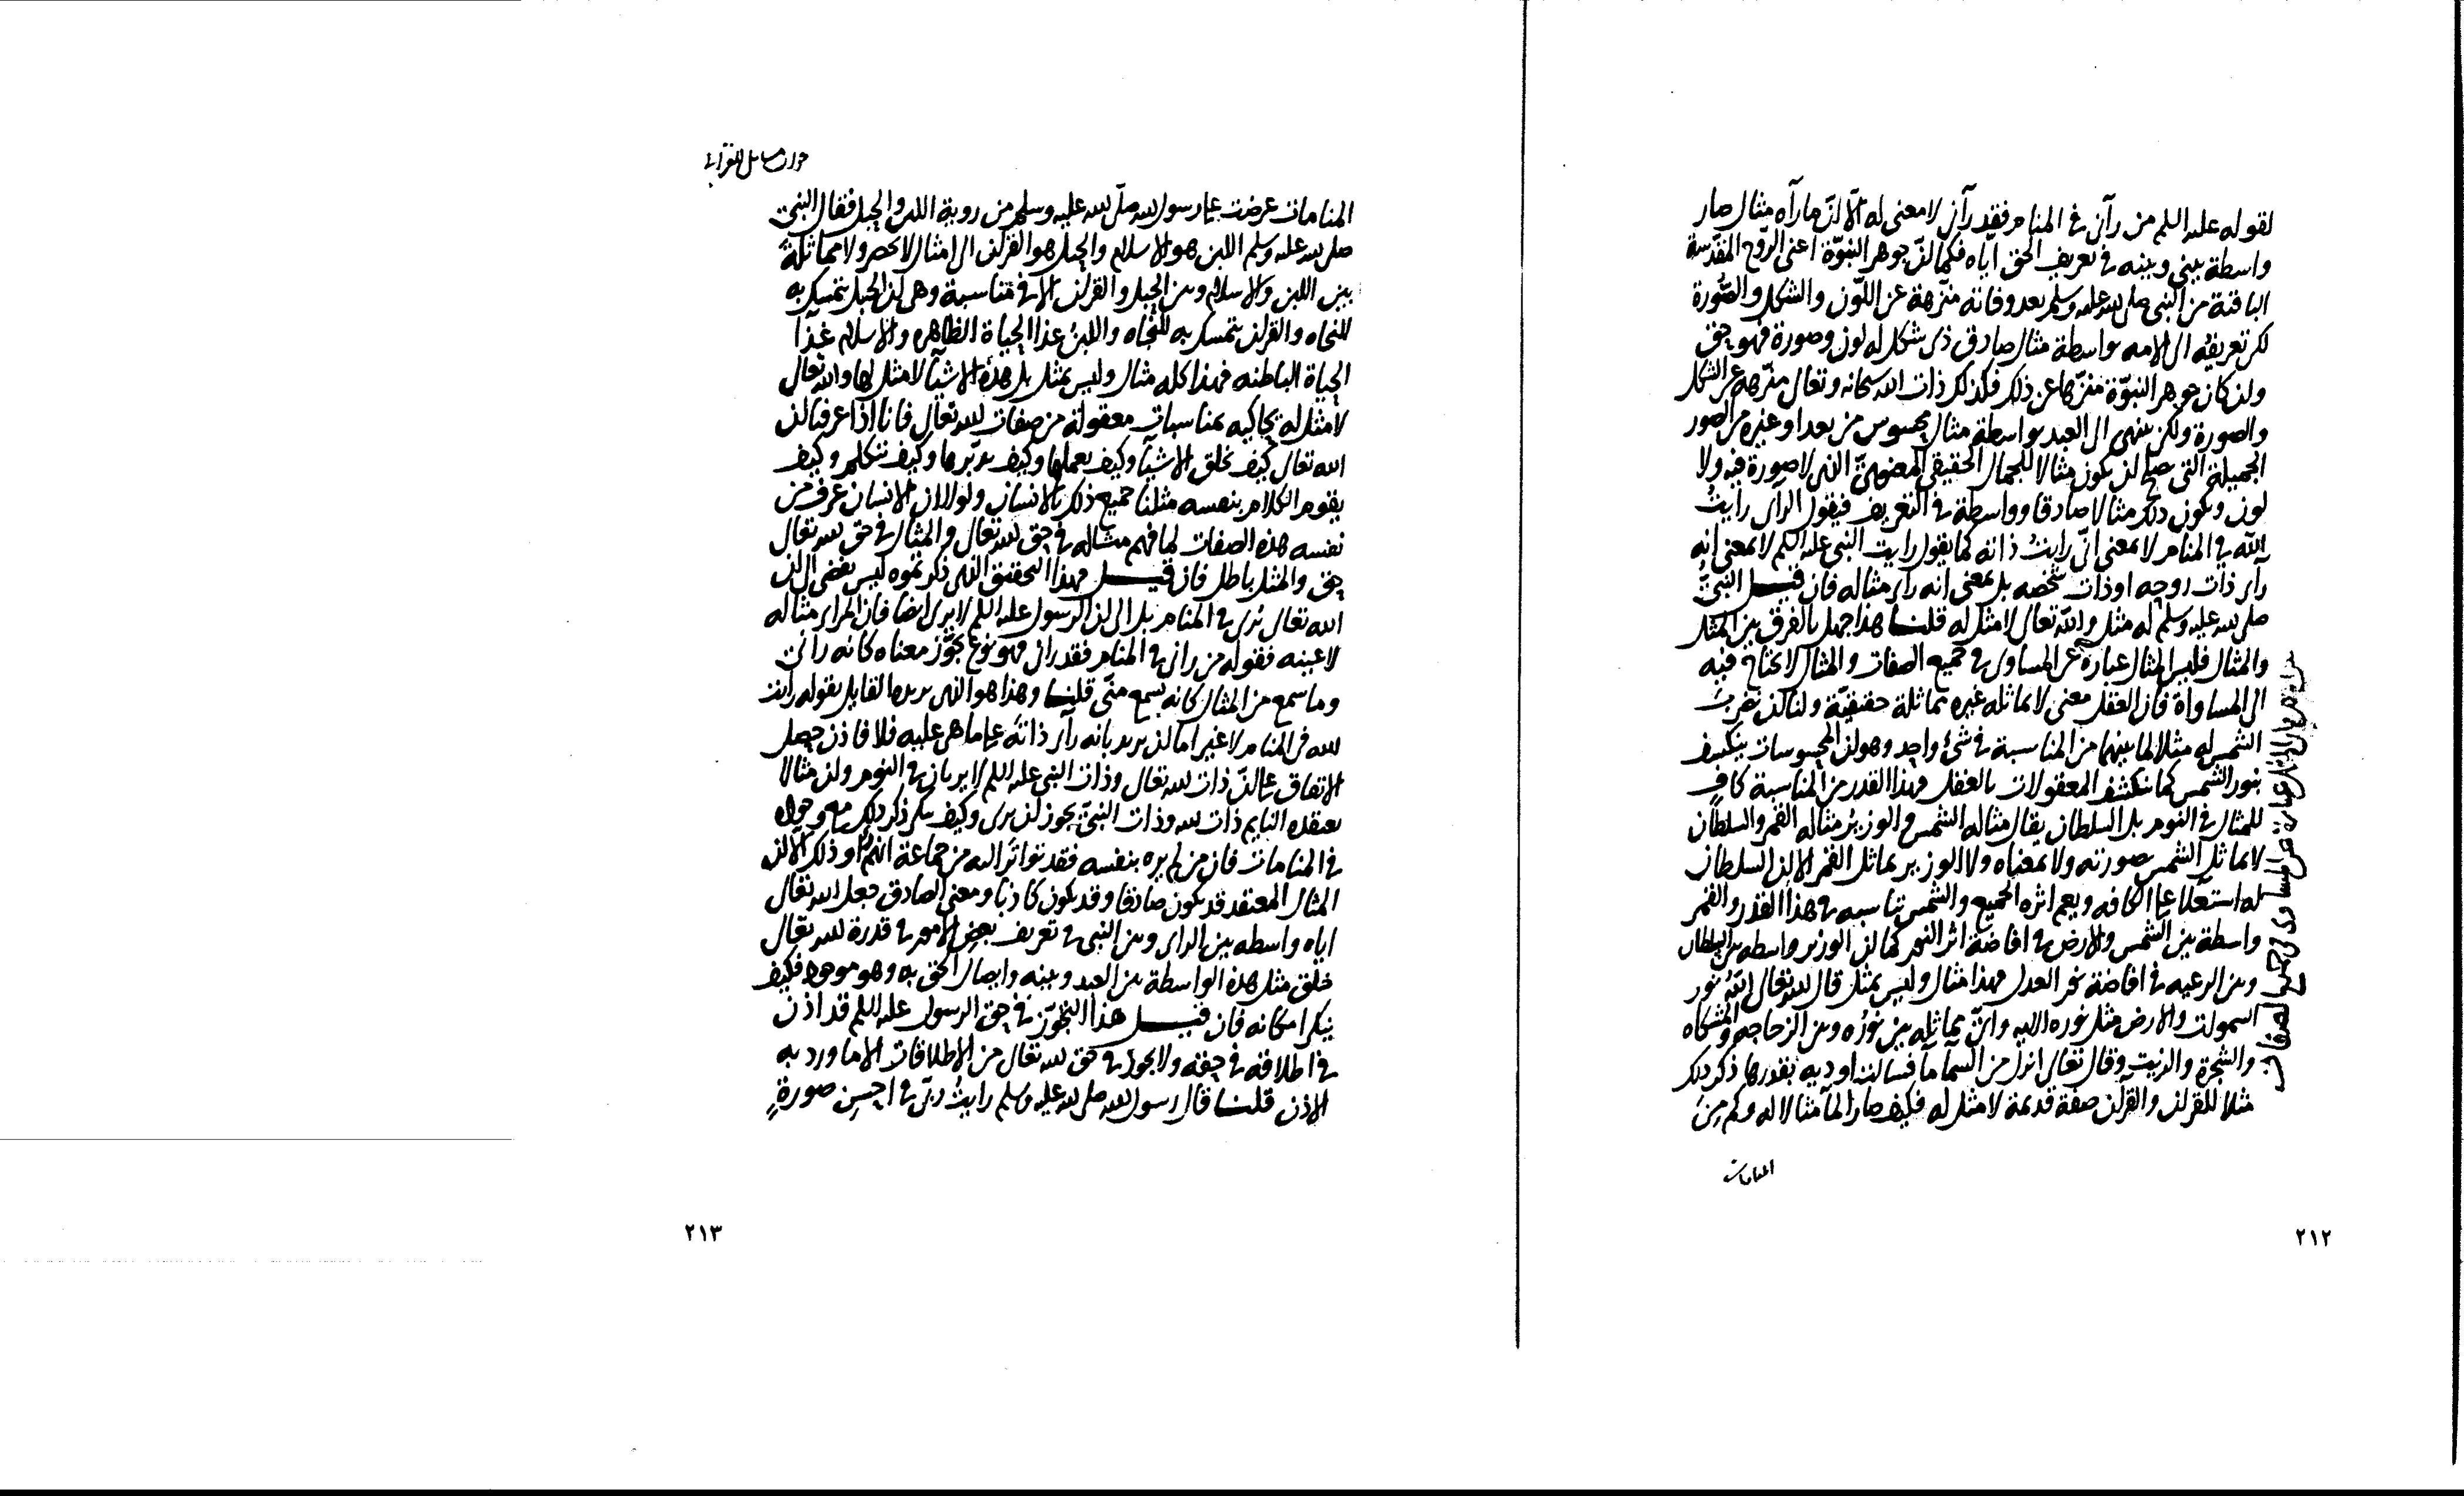 لقوله عليه السلم من رآنى فى المنام فقد رآنى لا معنى له الا انّ ما رآه مثال صار
واسطة بينى وبينه فى تعريف الحق اياه فكما انّ جوهر النبوّة اعنى الرّوح المقدّسة
الباقية من النبى صلى الله عليه وسلم بعد وفاته منزّهة عن اللّون والشكل والصّورة
لكن تعريفه الى الامه بواسطة مثال صادق ذى شكل له لون وصورة فهو حق
وان كان جوهر النبوّة منزّها عن ذلك فكذلك ذات الله سبحانه وتعالى منزّهة عن الشكل
والصورة ولكن ينتهى الى العبد بواسطة مثال محسوس من بعد او غيره من الصور
الجميلة التى يصلح ان يكون مثالا للجمال الحقيقى المعنوىّ الذى لا صورة فيه ولا
لون ويكون ذلك مثالا صادقا وواسطة فى التعريف فيقول الرآى رايتُ
الله فى المنام لا بمعنى انّى رايتُ ذاته كما يقول رايت النبى عليه السلم لا بمعنى انه
رآى ذات روحه او ذات شخصه بل بمعنى انه رآى مثاله فان قيل النبىُّ
صلى الله عليه وسلم له مثل والله تعالى لا مثل له قلنا هذا جهل بالفرق بين المثل
والمثال فليس المثال عبارة عن المساوى فى جميع الصفات والمثال لا يحتاج فيه
الى المساواة فان العقل معنى لا يماثله غيره مماثلة حقيقيّة ولنا ان نضرب
الشمس له مثلا لما بينهما من المناسبة فى شئ واحد وهو ان المحسوسات ينكشف
بنور الشمس كما ينكشف المعقولات بالعقل فهذا القدر من المناسبة كافٍ
للمثال فى النوم بل السلطان يقال مثاله الشمس والوزير مثاله القمر والسلطان
لا يماثل الشمس بصورته ولا بمعناه ولا الوزير يماثل القمر الا ان السلطان
له استعلا على الكافه ويعم اثره الجميع والشمس تناسبه فى هذا القدر والقمر
واسطة بين الشمس والارض فى افاضة اثر النور كما ان الوزير واسطه بين السلطان
وبين الرعيه فى افاضة نور العدل فهذا مثال وليس بمثل قال الله تعالى الله نور
السموات والارض مثل نوره الايه وانّى مماثله بين نوره وبين الزجاجه والمشكاه
والشجرة والزيت وقال تعالى انزل من السّمآ مآ فسالت اودية بقدرها ذكر ذلك
مثلا للقران والقرآن صفة قديمة لا مثل له فكيف صار المآ مثالا له وكم من
المنامات
٢١٢
المنامات عرضت على رسول الله صلّى الله عليه وسلم من روية اللبن والحبل فقال النبىّ
صلى الله عليه وسلم اللبن هو الاسلام والحبل هو القران الى امثال لا تحصر ولا مماثلة
بين اللبن والاسلام وبين الحبل والقران الا فى مناسبة وهى ان الحبل يتمسك به
للنجاه والقران يتمسك به للنجاه واللبن غذا الحياة الظاهره والاسلام غذآ
الحياة الباطنه فهذا كله مثال وليس بمثل بل هذه الاشيآ لا مثل لها والله تعالى
لا مثل له يحاكيه بمناسبات معقولة من صفات الله تعالى فانا اذا عرفنا ان
الله تعالى كيف يخلق الاشيآ وكيف يعملها وكيف يدبّرها وكيف يتكلم وكيف
يقوم الكلام بنفسه مثلنا جميع ذلك بالانسان ولولا ان الانسان عرف من
نفسه هذه الصفات لما فهم مثاله فى حق الله تعالى والمثال فى حق الله تعالى
حق والمثل باطل فان قيل فهذا التحقيق الذى ذكرتموه ليس يفضى الى ان
الله تعالى يُرى فى المنام بل الى ان الرسول عليه السلم لا يرى ايضا فان المرآى مثاله
لا عينه فقوله من رانى فى المنام فقد رانى فهو نوع تجوّز معناه كانه رانى
وما سمع من المثال كانه يسمع منّى قلنا وهذا هو الذى يريده القايل بقوله رايت
الله فى المنام لا غير اما ان يريد بانه رآى ذاته على ما هى عليه فلا فاذن حصل
الاتفاق على انّ ذات الله تعالى وذات النبى عليه السلم لا يريان فى النوم وان مثالا
يعتقده النايم ذات الله وذات النبىّ يجوز ان يرى وكيف ينكر ذكر ذلك مع وجوده
فى المنامات فان من لم يره بنفسه فقد تواتر اليه من جماعة انهم راو ذلك الا ان
المثال المعتقد قد يكون صادقا وقد يكون كاذبا ومعنى الصادق جعل الله تعالى
اياه واسطه بين الراى وبين النبى فى تعريف بعض الامور فى قدرة الله تعالى
خلق مثل هذه الواسطة بين العبد وبينه وايصال الحق به وهو موجود فكيف
ينكر امكانه فان قيل هذا التجوّز فى حق الرسول عليه السلم قد اذن
فى اطلاقه فى حقه ولا يجوز فى حق الله تعالى من الاطلاقات الا ما ورد به
الاذن قلنا قال رسول الله صلى الله عليه وسلم رايتُ ربّى فى احسن صورةٍ
٢١٣